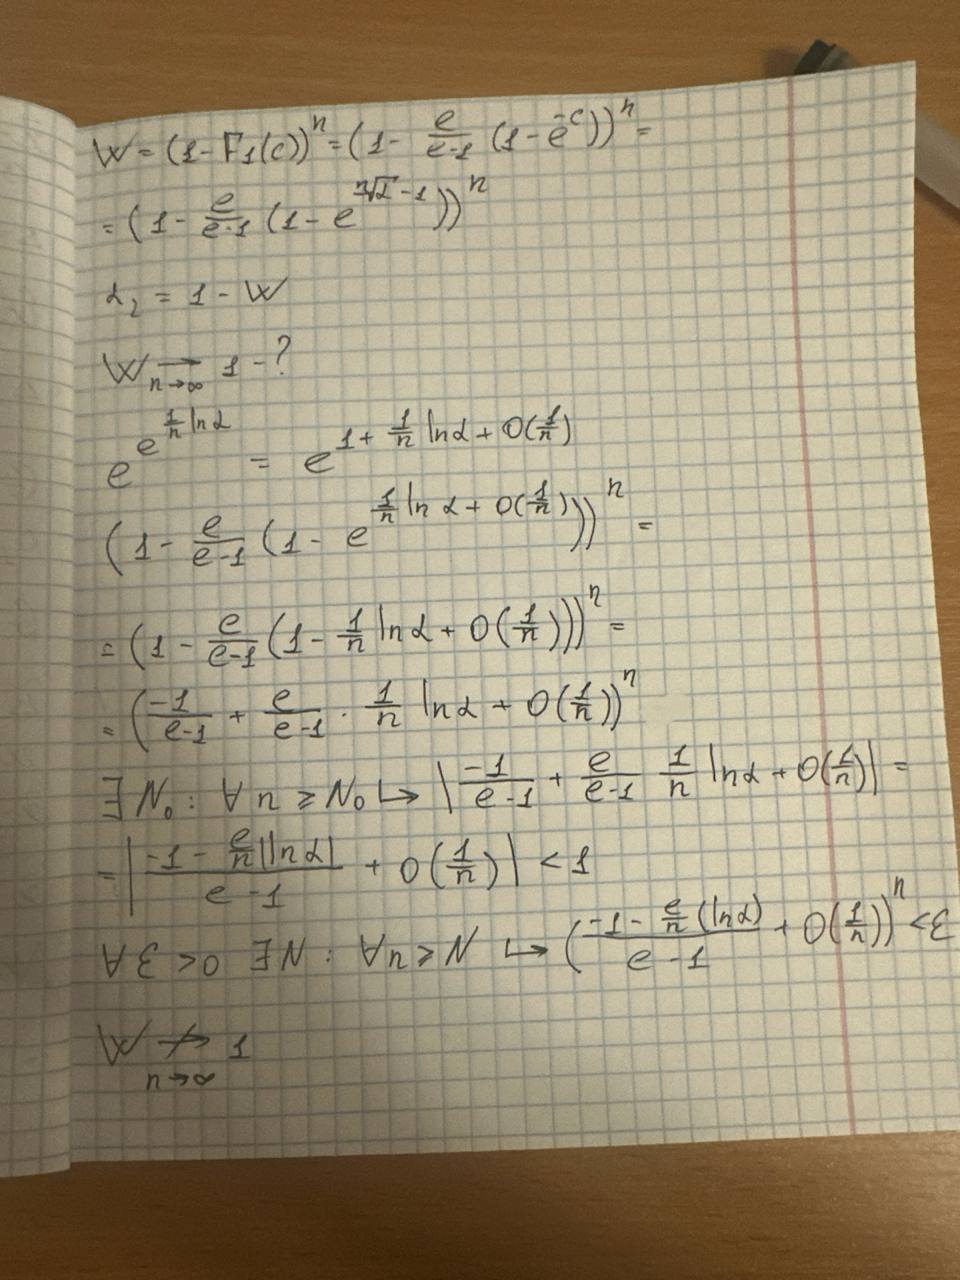 W = (1 - F₁(c))ⁿ = (1 - e/(e-1) (1 - e^(-c)))ⁿ =
= (1 - e/(e-1) (1 - e^(ⁿ√α - 1)))ⁿ
α₂ = 1 - W
W →_(n→∞) 1 - ?
e^(e^(1/n ln α)) = e^(1 + 1/n ln α + O(1/n))
(1 - e/(e-1) (1 - e^(1/n ln α + O(1/n))))ⁿ =
= (1 - e/(e-1) (1 - 1/n ln α + O(1/n)))ⁿ =
= (-1/(e-1) + e/(e-1) · 1/n ln α + O(1/n))ⁿ
∃ N₀ : ∀ n ≥ N₀ ↪ |-1/(e-1) + e/(e-1) 1/n ln α + O(1/n)| =
= |(-1 - e/n |ln α|)/(e-1) + O(1/n)| < 1
∀ ε > 0 ∃ N : ∀ n ≥ N ↪ ((-1 - e/n (ln α))/(e-1) + O(1/n))ⁿ < ε
W ↛_(n→∞) 1